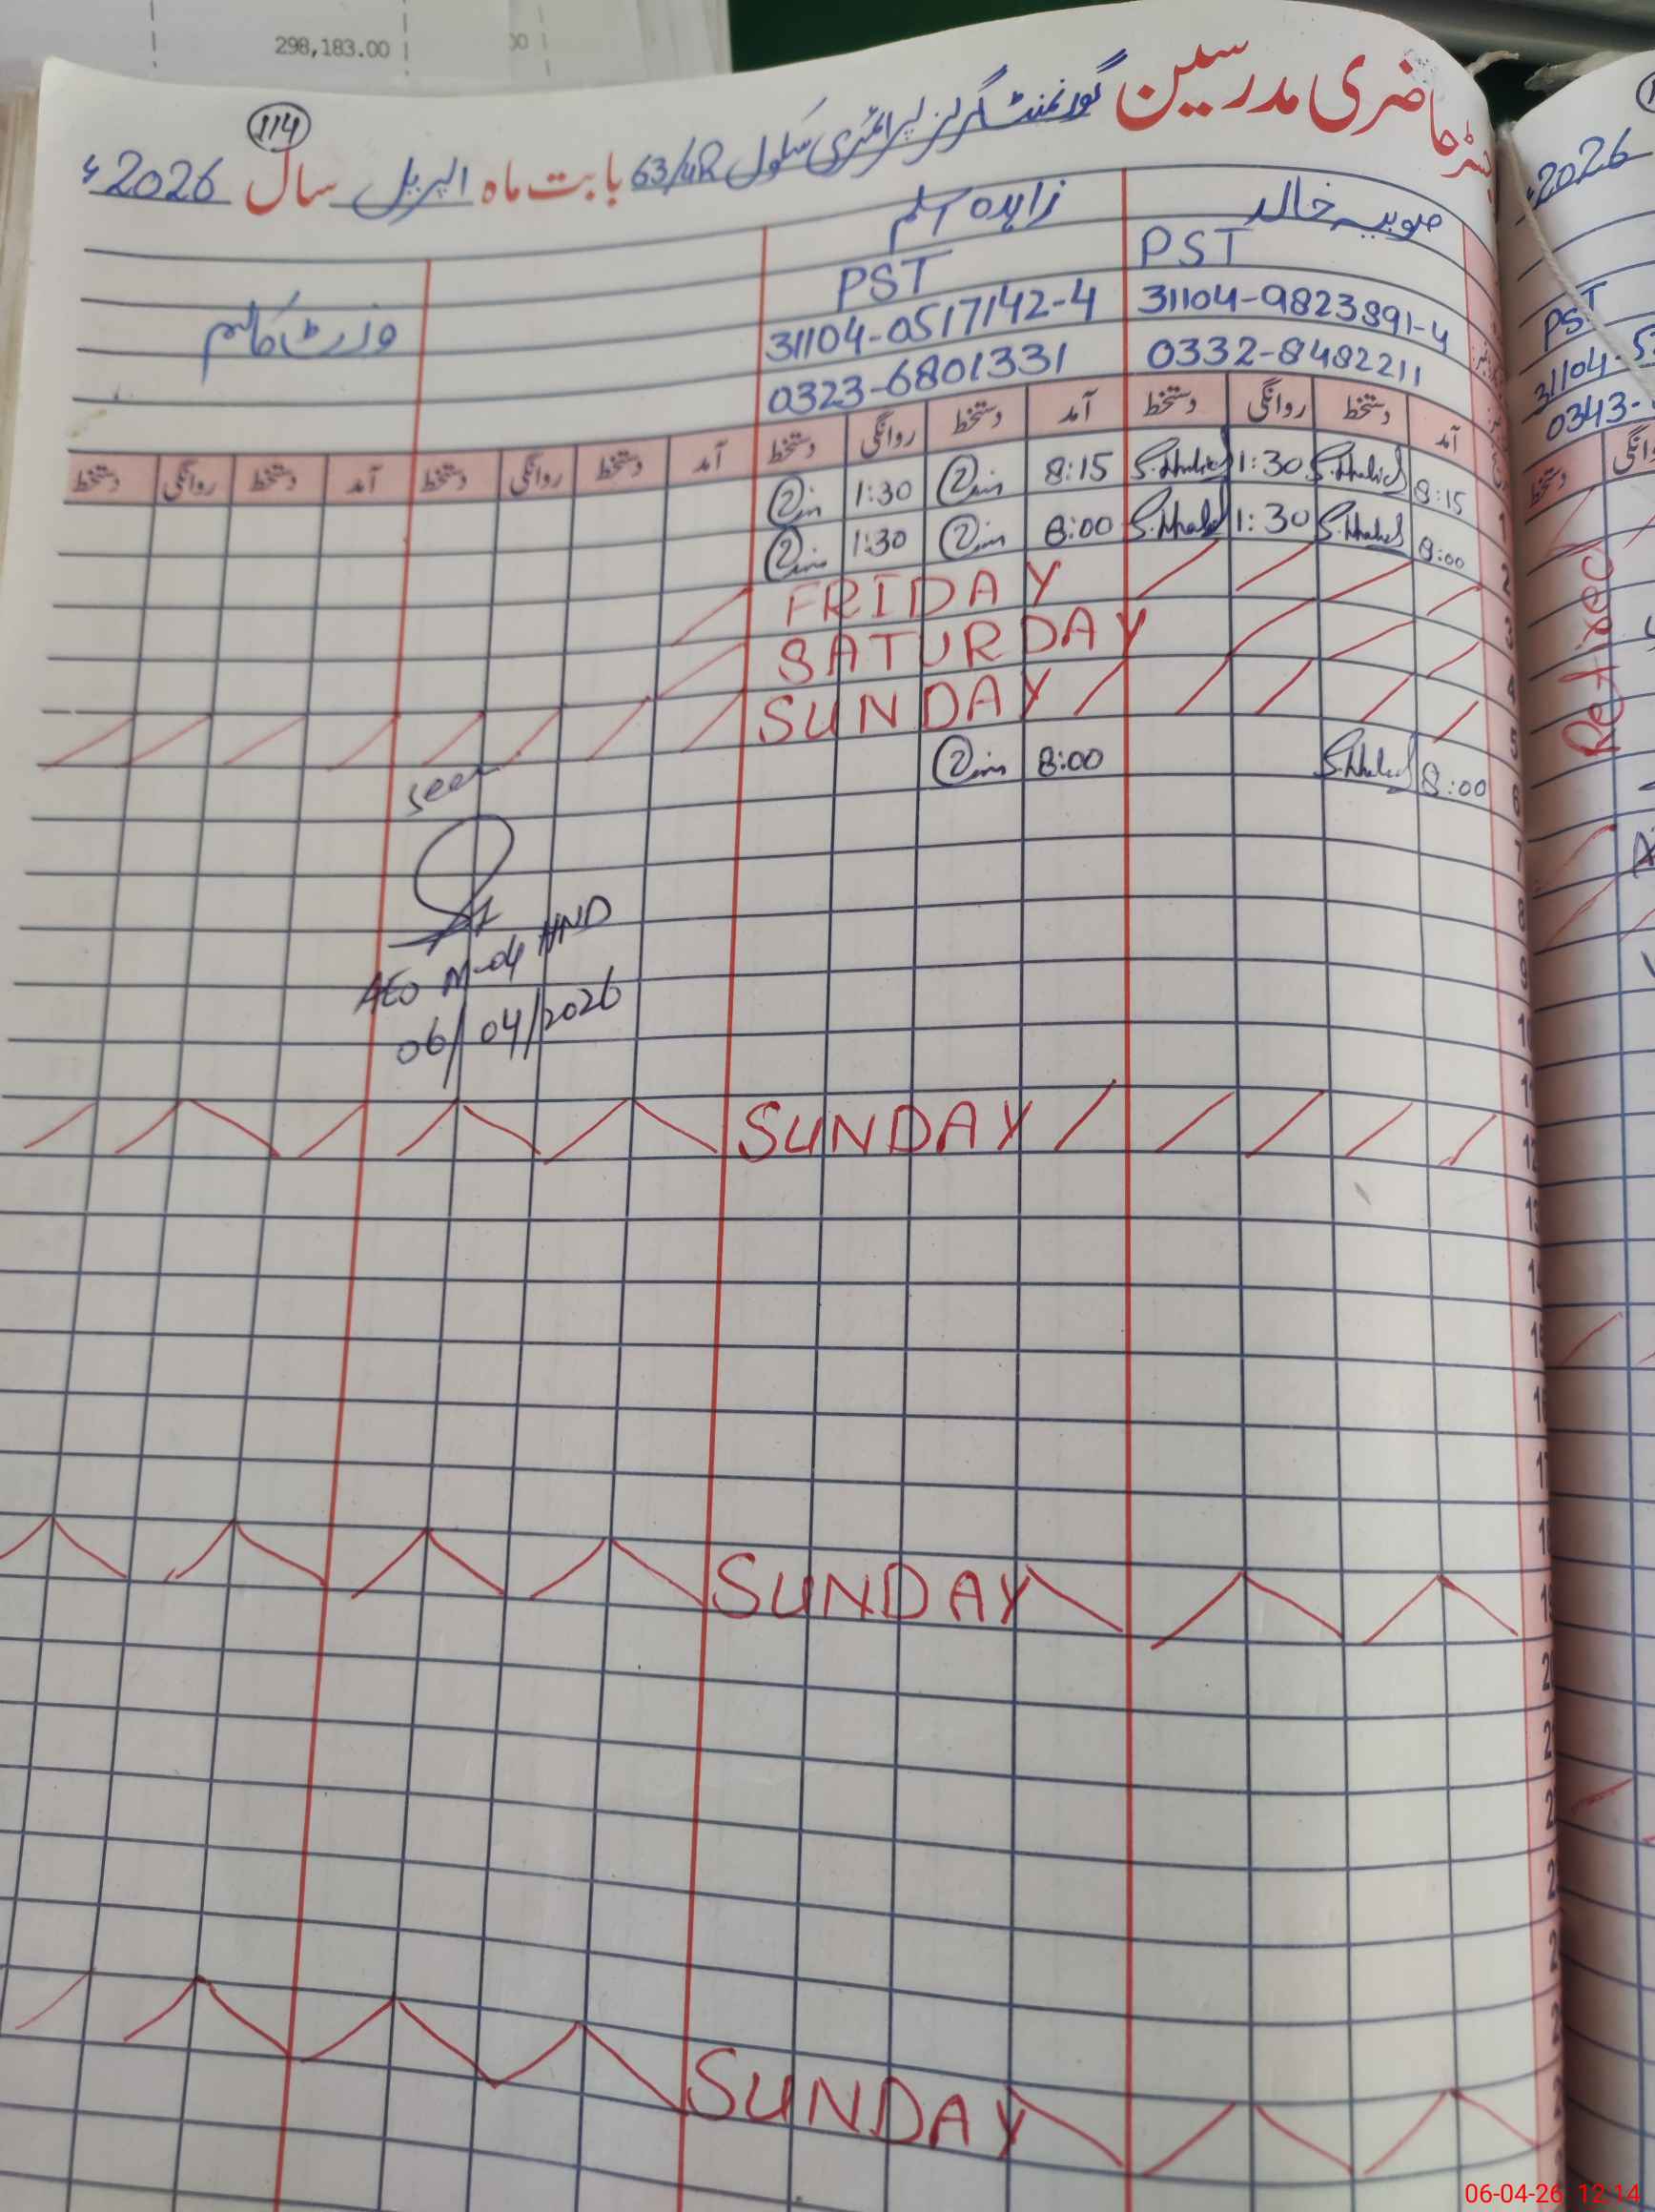 298,183.00
114
رجسٹر حاضری مدرسین گورنمنٹ گرلز پرائمری سکول 63/4R بابت ماہ اپریل سال 2026ء
صوبیہ خالد
زاہدہ اسلم
PST
PST
31104-9823891-4
31104-0517142-4
0332-8482211
0323-6801331
وزٹ کالم
آمد دستخط روانگی دستخط آمد دستخط روانگی دستخط آمد دستخط روانگی دستخط آمد دستخط روانگی دستخط
1 8:15 S.Khalid 1:30 S.Khalid 8:15 1:30
2 8:00 S.Khalid 1:30 S.Khalid 8:00 1:30
3 FRIDAY
4 SATURDAY
5 SUNDAY
6 8:00 S.Khalid 8:00
seen
7
8
AEO M-04 HND
9
06/04/2026
10
11
12 SUNDAY
13
14
15
SUNDAY
SUNDAY
2026
PST
31104-5
0343-
دستخط
روانگی
Retired
06-04-26 12:14